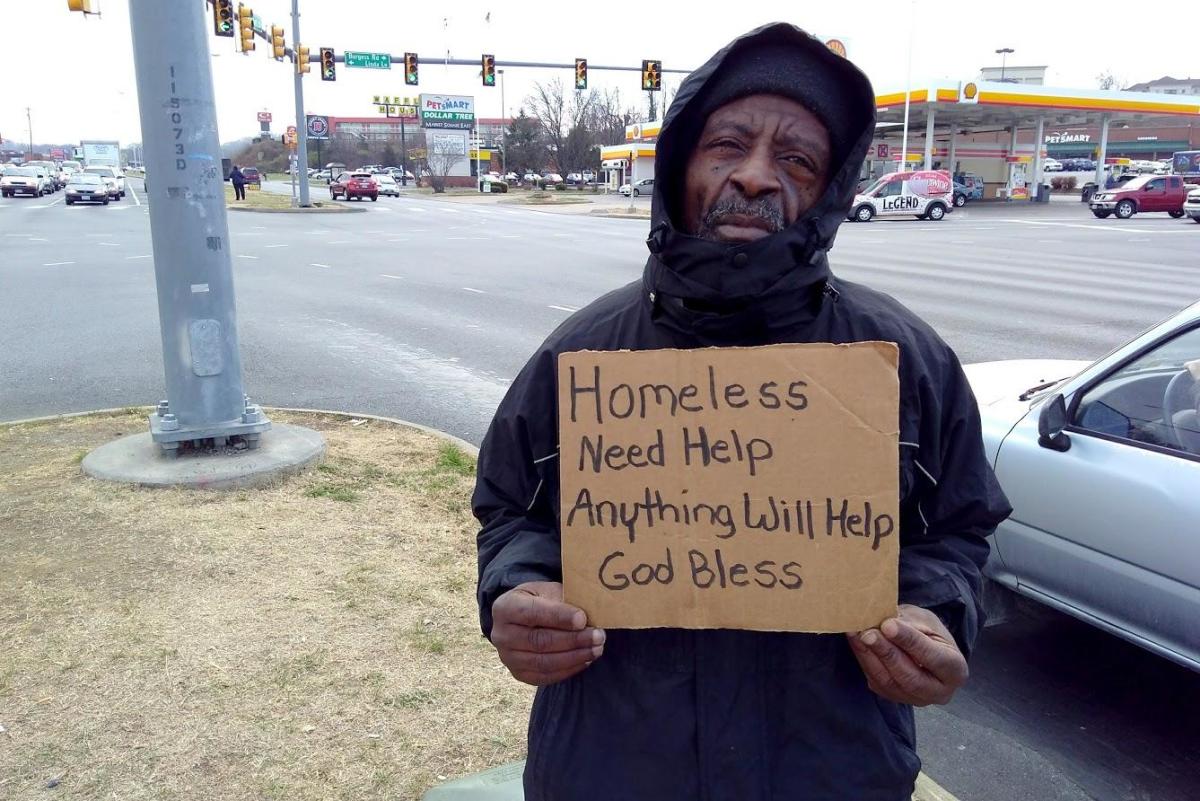 115073D
Burgess Rd
Linda Ln
WAFFLE
HOUSE
PETSMART
DOLLAR TREE
MARKET SQUARE EAST
PETSMART
LeGEND
Homeless
Need Help
Anything Will Help
God Bless